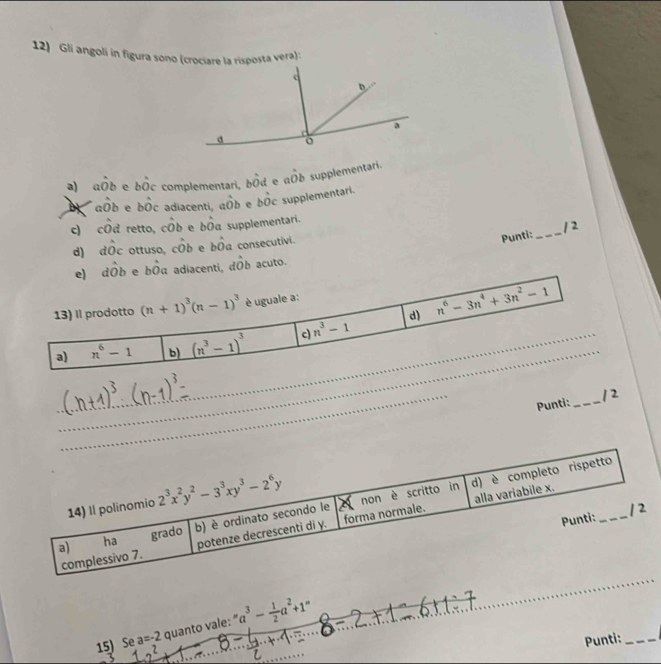 12) Gli angoli in figura sono (crociare la risposta vera):
c
b
a
d
O
a) aÔb e bÔc complementari, bÔd e aÔb supplementari.
b) aÔb e bÔc adiacenti, aÔb e bÔc supplementari.
c) cÔd retto, cÔb e bÔa supplementari.
d) dÔc ottuso, cÔb e bÔa consecutivi.
e) dÔb e bÔa adiacenti, dÔb acuto.
Punti: _ _ _/ 2
13) Il prodotto (n + 1)³(n − 1)³ è uguale a:
a) n⁶ − 1 b) (n³ − 1)³ c) n³ − 1 d) n⁶ − 3n⁴ + 3n² − 1
(n+1)³ · (n-1)³ =
Punti: _ _ _/ 2
14) Il polinomio 2³x²y² − 3³xy³ − 2⁶y
a) ha grado complessivo 7. b) è ordinato secondo le potenze decrescenti di y. non è scritto in forma normale. d) è completo rispetto alla variabile x.
Punti: _ _ _/ 2
15) Se a=-2 quanto vale: "a³ − 1/2a² + 1"
8 - 4/2 + 1 = 8 - 2 + 1 = 6 + 1 = 7
Punti: _ _ _/